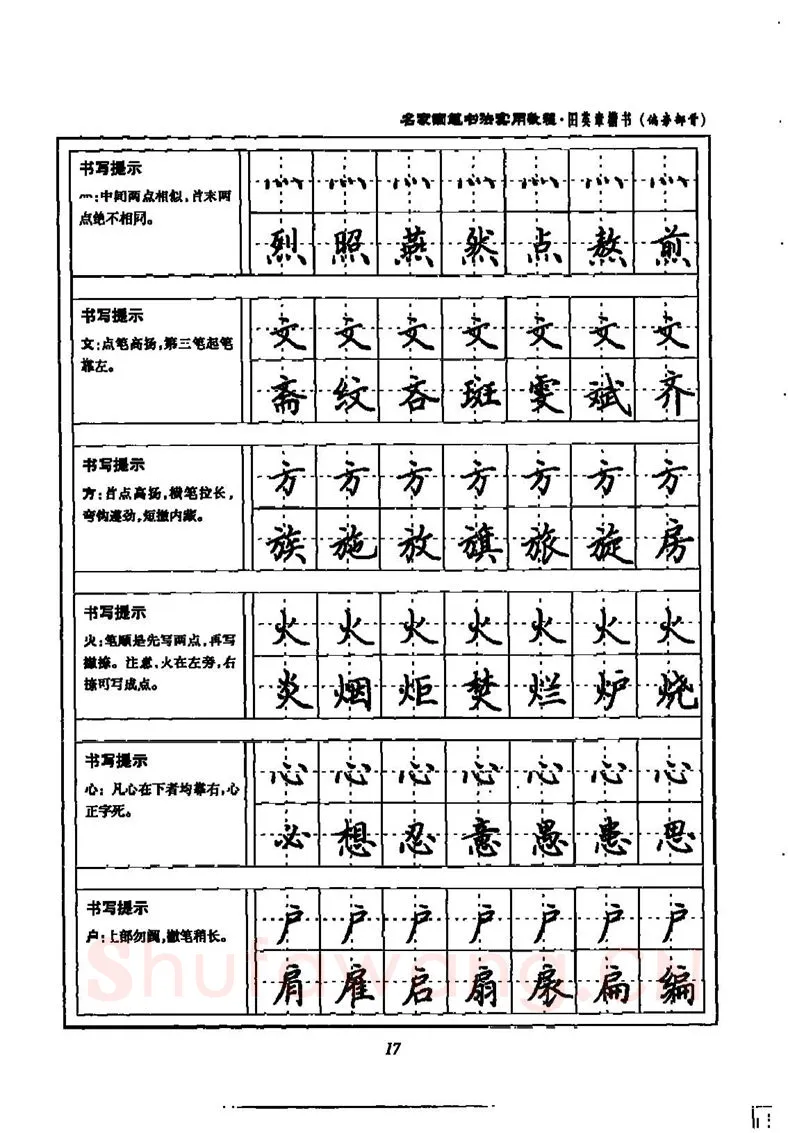 名家钢笔书法实用教程·田英章楷书（偏旁部首）
书写提示
灬：中间两点相似，首末两
点绝不相同。
灬 灬 灬 灬 灬 灬 灬
烈 照 燕 然 点 熬 煎
书写提示
文：点笔高扬，第三笔起笔
靠左。
文 文 文 文 文 文 文
斋 纹 吝 斑 雯 斌 齐
书写提示
方：首点高扬，横笔拉长，
弯钩遒劲，短撇内藏。
方 方 方 方 方 方 方
族 施 放 旗 旅 旋 房
书写提示
火：笔顺是先写两点，再写
撇捺。注意，火在左旁，右
捺可写成点。
火 火 火 火 火 火 火
炎 烟 炬 焚 烂 炉 烧
书写提示
心：凡心在下者均靠右，心
正字死。
心 心 心 心 心 心 心
必 想 忍 意 愚 患 思
书写提示
户：上部勿阔，撇笔稍长。
户 户 户 户 户 户 户
肩 雇 启 扇 扆 扁 编
Shufawang.CN
17